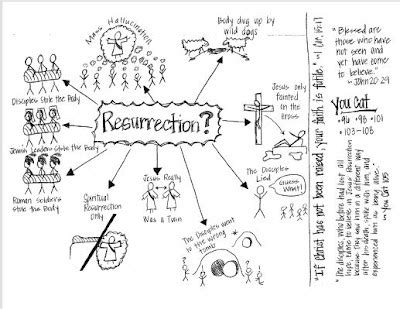 Mass Hallucination
Body dug up by
wild dogs
Disciples Stole the Body
Jesus only
fainted
Jewish Leaders Stole the Body
Resurrection?
The Disciples
Lied
Guess
What?
Roman Soldiers
Stole the Body
Spiritual
Resurrection
Only
Jesus Really
Was a Twin
The Disciples went
to the wrong
tomb
"If Christ has not been raised, your faith is futile." ~1 Cor. 15:17
"Blessed are
those who have
not seen and
yet have come
to believe."
~John 20:29
YOU Cat
• 96 • 98 • 101
• 103-105
"The disciples, who before had lost all
hope, came to believe in Jesus' Resurrection
because they saw him in a different way
after his death, spoke with him, and
experienced him as being alive."
~ You Cat 105